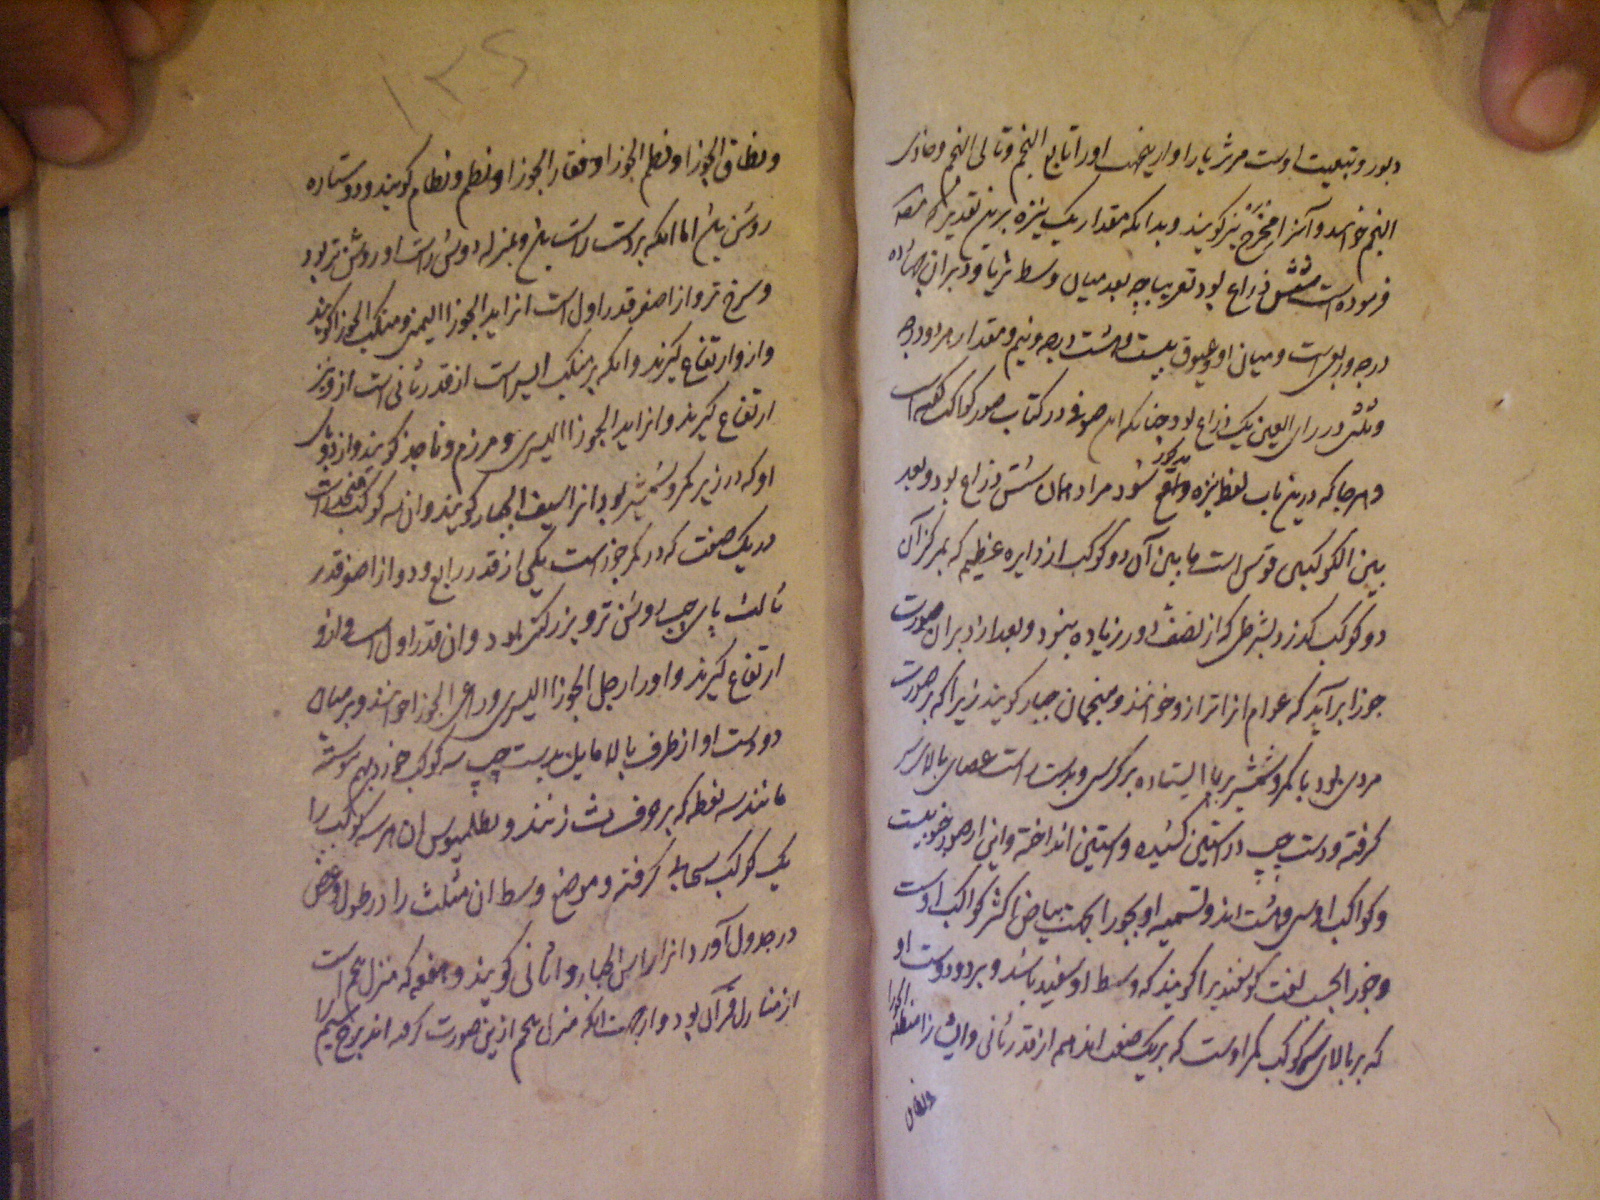 دبور و تبعیت اوست مر ثریا را و ازینجهت او را تابع النجم و تالی النجم و حادی
النجم خوانند و آنرا مخرج نیز گویند و بدانکه مقدار یک نیزه برین تقدیر که
فرموده است شش ذراع بود تقریبا چه بعد میان وسط ثریا و دبران چهارده
درجه و ربعی است و میان او و عیوق بیست و هشت درجه و نیم و مقدار هر دو درجه
و ثلثی در رای العین یک ذراع بود چنانکه ابن صوفی در کتاب صور کواکب گفته است
و هر جا که درین باب لفظ نیزه واقع مذکور شود مراد همان شش ذراع بود و بعد
بین الکوکبین قوس است ما بین آن دو کوکب از دایره عظیم که بمرکز آن
دو کوکب گذرد بشرطی که از نصف دور زیاده نبود و بعد از دبران صورت
جوزا برآید که عوام آنرا ترازو خوانند و منجمان جبار گویند زیرا که بر صورت
مردی بود با کمر و شمشیر بر پا ایستاده بر کرسی و بدست راست عصای بالای سر
گرفته و دست چپ در آستین کشیده و آستین انداخته و این از صور جنوبیست
و کواکب او سی و هشت اند و تسمیه او بجوزا بجهت بیاض اکثر کواکب اوست
و جوزا بحسب لغت گوسفندیرا گویند که وسط او سفید باشد و بر دو دوست او
که بر بالای سه کوکب کمر اوست که بر یک صف اند هم از قدر ثانی و ایشانرا منطقة الجوزا
و نطاق
۱۳۶
و نطاق الجوزا و نظم الجوزا و فقار الجوزا و نظم و نظام گویند و دو ستاره
روشن بین اما آنکه بر دست راست بین و بمنزله دوش راست او روشن تر بود
و سرخ تر و از اصغر قدر اول است آنرا ید الجوزا الیمنی و منکب الجوزا گویند
و ازو ارتفاع گیرند و آنکه بر منکب ایسر است از قدر ثانی است ازو نیز
ارتفاع گیرند و آنرا ید الجوزا الیسری و مرزم و ناجذ گویند و از دو پای
او که در زیر کمر و شمشیر بود آنرا سیف الجبار گویند و آن سه کوکب
در یک صف که در کمر جوزاست یکی از قدر رابع و دو از اصغر قدر
ثالث پای چپ روشن تر و بزرگتر بود و آن قدر اول است و ازو
ارتفاع گیرند و او را رجل الجوزا الیسری و راعی الجوزا خوانند و بر میان
دو دست او از طرف بالا مایل بدست چپ سه کوکب خرد بهم پیوسته
مانند سه نقطه که بر حرف ث زنند و بطلمیوس آن هر سه کوکب را
یک کوکب سحابی گرفته و موضع وسط آن مثلث را در طول و عرض
در جدول آورد آنرا راس الجبار و اثافی گویند و هقعه که منزل پنجم است
از منازل قمر آن بود و از جهت آنکه منزل پنجم ازین صورت گرفته اند برج سیم را